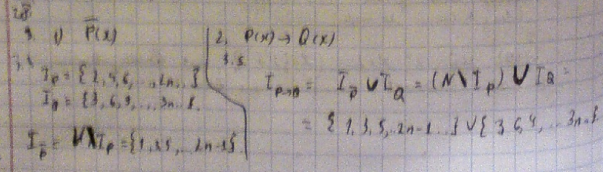 1) P̅(x)
I_P = {2, 4, 6, ..., 2n...}
I_Q = {3, 6, 9, ... 3n...}
I_P̅ = N\I_P = {1, 3, 5, ... 2n-1}
2. P(x) → Q(x)
I_P→Q = I_P̅ ∪ I_Q = (N\I_P) ∪ I_Q =
= {1, 3, 5, .. 2n-1 ...} ∪ {3, 6, 9, ... 3n...}